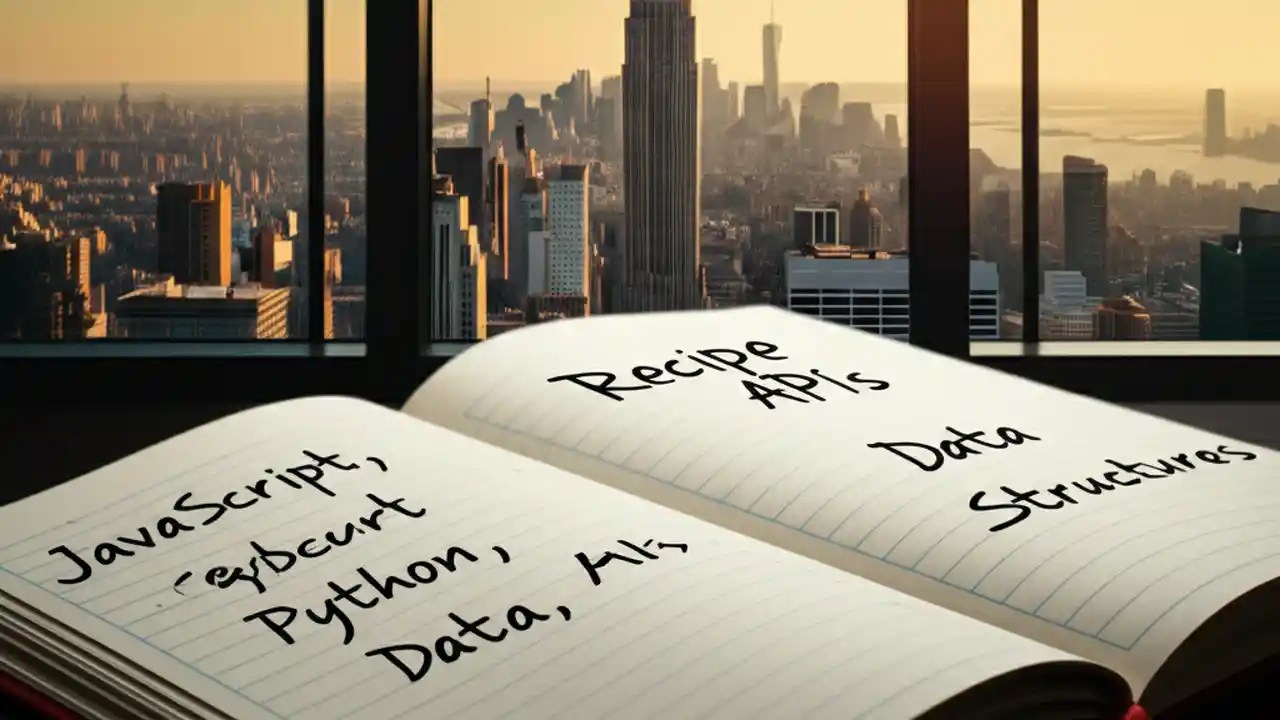 JavaScript,
Python,
Data,
Recipe
APIs
Data
Structures